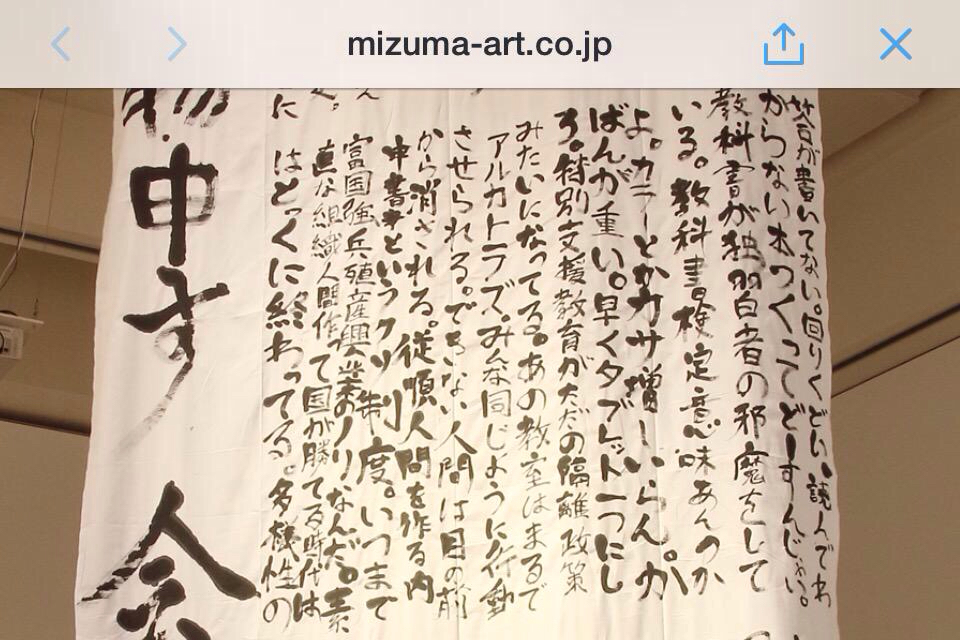 mizuma-art.co.jp
答が書いてない。回りくどい、読んでわ
からない本つくってどーすんじゃい。
教科書が独習者の邪魔をして
いる。教科書検定意味あんのか
よ。カラーとかカサ増しいらん。カ
ばんが重い。早くタブレット一つにし
ろ。特別支援教育がただの隔離政策
みたいになってる。あの教室はまるで
アルカトラズ。みんな同じように行動
させられる。できない人間は目の前
から消される。従順人間を作る内
申書というクソ制度。いつまで
富国強兵殖産興業のノリなんだ。素
直な組織人間作って国が勝てる時代は
はとっくに終わってる。多様性の
に
申す会